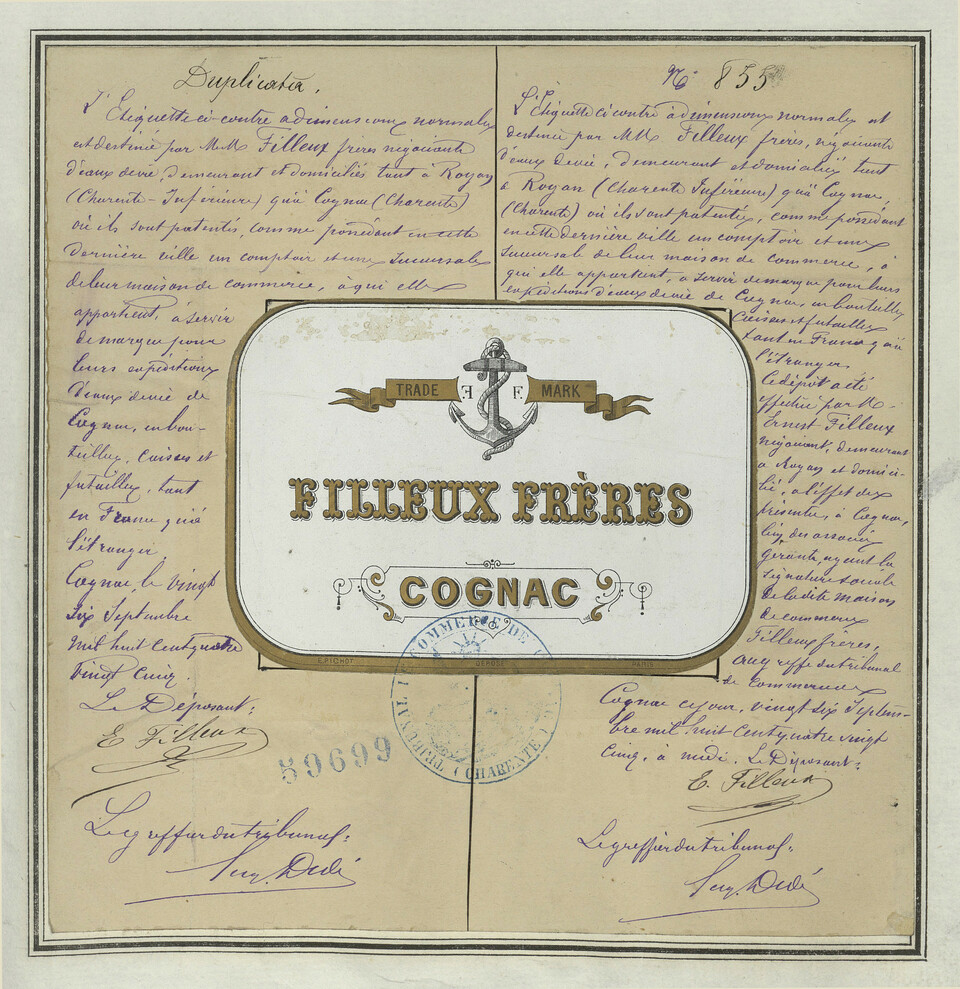 Duplicata.
L'Etiquette ci-contre a dimensions normales
est destinée par M.M. Filleux frères négociants
d'eaux devie, demeurant et domiciliés tant à Royan
(Charente-Inférieure) qu'à Cognac (Charente)
où ils sont patentés, comme possédant en cette
dernière ville un comptoir et une succursale
de leur maison de commerce, à qui elle
appartient, à servir
de marque pour
leurs expéditions
d'eaux devie de
Cognac, en bou-
teilles, caisses et
futailles, tant
en France qu'à
l'étranger.
Cognac, le vingt
six Septembre
mil huit cent quatre
vingt cinq.
Le Déposant:
E. Filleux
Le greffier du tribunal:
Dedé
N° 855
L'Etiquette ci contre à dimensions normales est
destinée par M.M. Filleux frères, négociants
d'eaux devie, demeurant et domiciliés tant
à Royan (Charente Inférieure) qu'à Cognac,
(Charente) où ils sont patentés, comme possédant
en cette dernière ville un comptoir et une
succursale de leur maison de commerce, à
qui elle appartient, à servir de marque pour leurs
expéditions d'eaux devie de Cognac, en bouteilles,
caisses et futailles
tant en France qu'à
l'étranger.
Le dépôt a été
effectué par M.
Ernest Filleux
négociant, demeurant
à Royan et domici-
lié, à l'effet des
présentes, à Cognac,
l'un des associés
gérants, ayant la
signature sociale
de la dite maison
de commerce
Filleux frères,
au greffe du tribunal
de Commerce de
Cognac ce jour, vingt six Septem-
bre mil huit cent quatre vingt
cinq, à midi. Le Déposant:
E. Filleux
Le greffier du tribunal:
Dedé
TRADE MARK
F F
FILLEUX FRÈRES
COGNAC
E. PICHOT DÉPOSÉ PARIS
TRIBUNAL DE COMMERCE DE
(CHARENTE)
59699